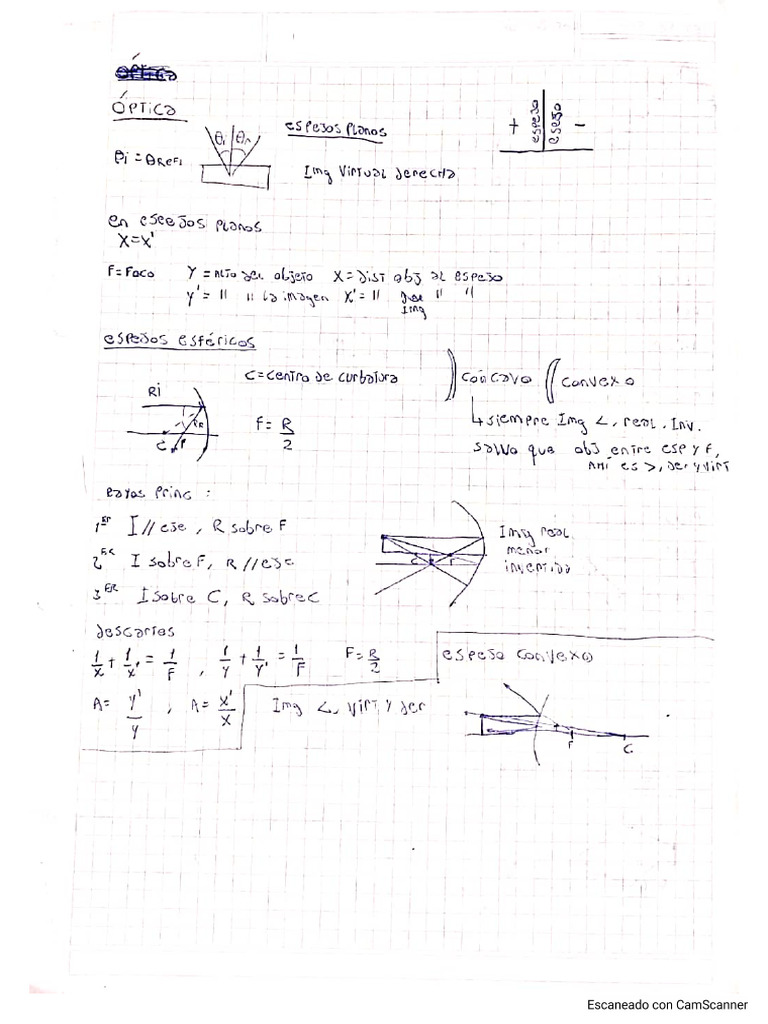 ÓPTICA
ÓPTICA
θi θr
espejos planos
+ espejo espejo -
θi = θRefl
Img virtual derecha
en espejos planos
X = X'
F = Foco Y = Alto del objeto X = Dist obj al espejo
Y' = " " la imagen X' = " de " "
Img
espejos esféricos
C = centro de curbatura
cóncavo convexo
Ri
RR
C F
F = R/2
↳ siempre Img <, real, Inv.
salvo que obj entre esp y F,
Ahí es >, der y virt
Rayos Princ :
1er I // eje , R sobre F
2 I sobre F, R // eje
3er I sobre C, R sobre C
C F
Img real
menor
invertida
descartes
1/X + 1/X' = 1/F , 1/Y + 1/Y' = 1/F F = R/2
espejo convexo
A = Y'/Y , A = X'/X
Img <, virt y der
F C
Escaneado con CamScanner